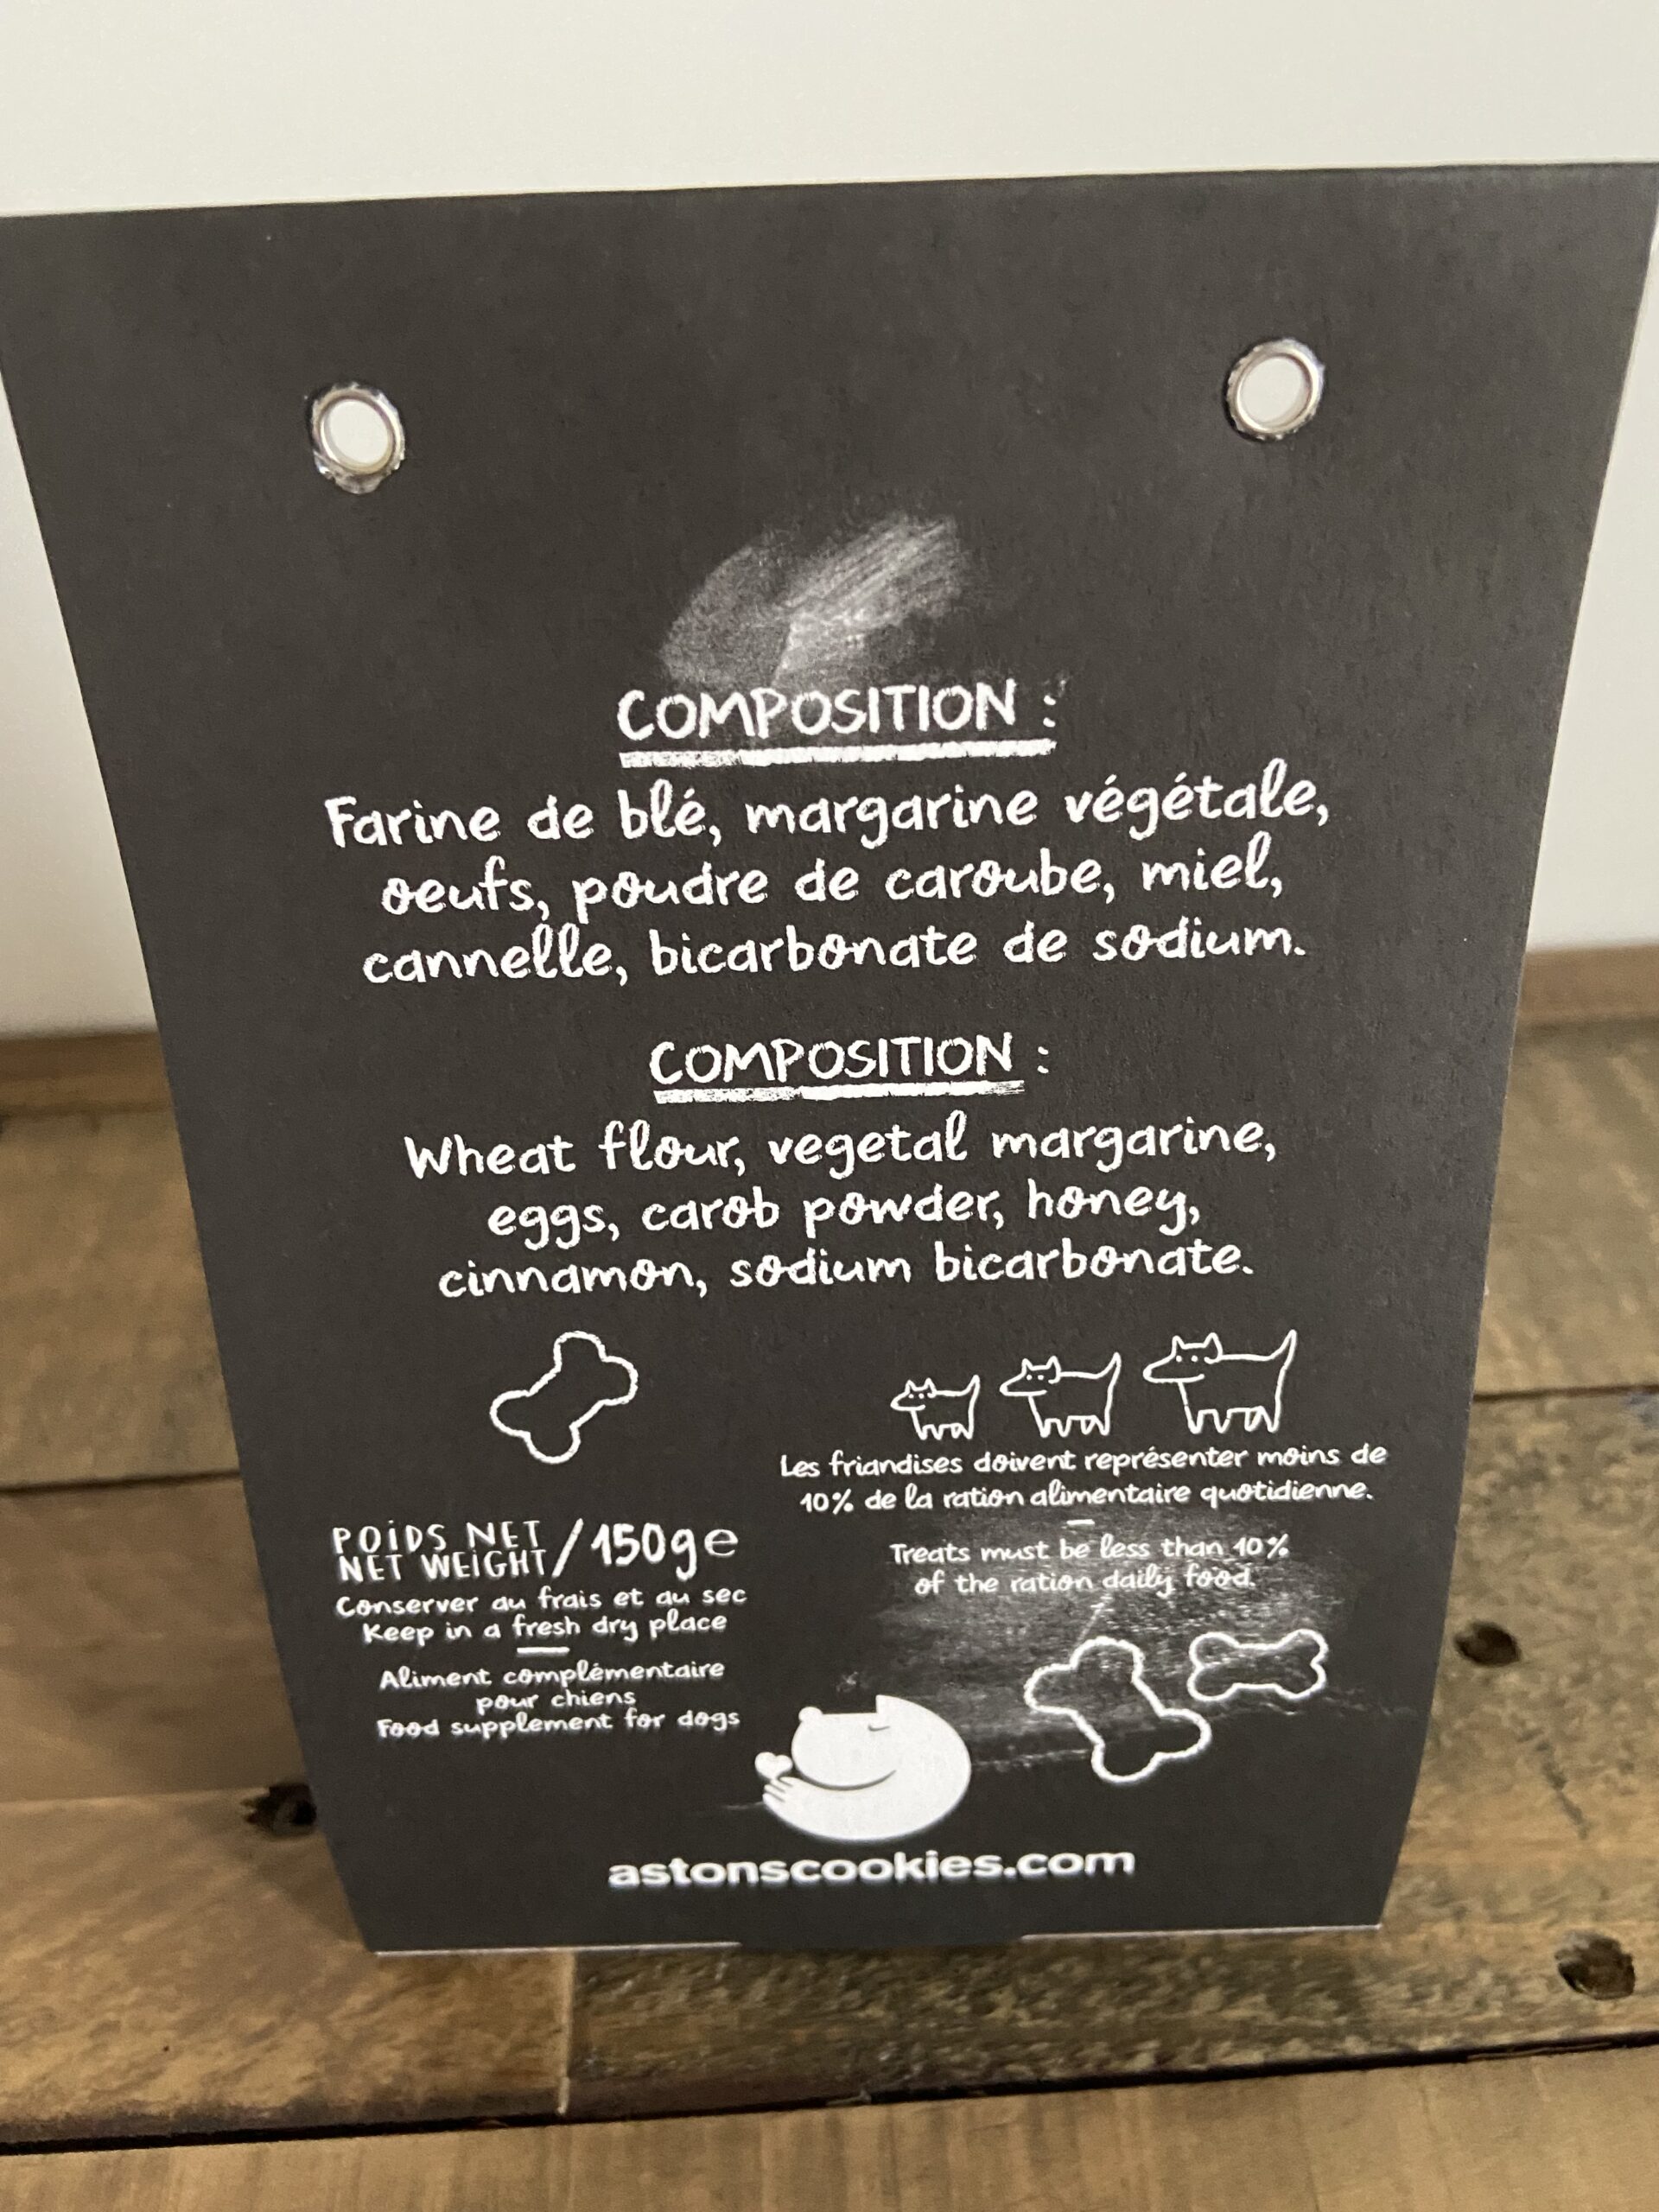 COMPOSITION :
Farine de blé, margarine végétale,
oeufs, poudre de caroube, miel,
cannelle, bicarbonate de sodium.
COMPOSITION :
Wheat flour, vegetal margarine,
eggs, carob powder, honey,
cinnamon, sodium bicarbonate.
Les friandises doivent représenter moins de
10% de la ration alimentaire quotidienne.
Treats must be less than 10%
of the ration daily food.
POIDS NET
NET WEIGHT / 150g e
Conserver au frais et au sec
Keep in a fresh dry place
Aliment complémentaire
pour chiens
Food supplement for dogs
astonscookies.com